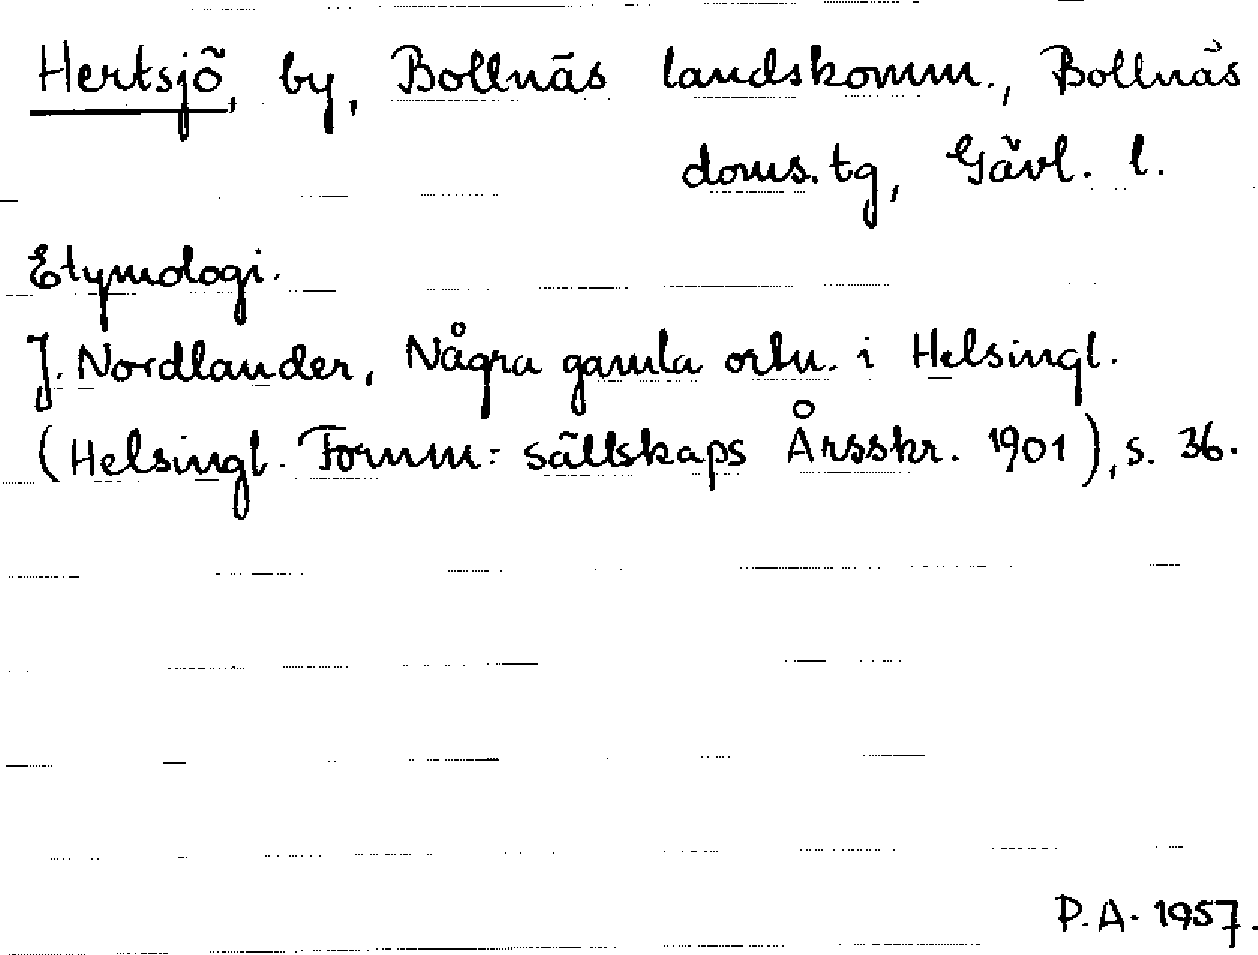 Hertsjö, by, Bollnäs landskomm., Bollnäs
doms.tg, Gävl. l.
Etymologi.
J. Nordlander, Några gamla ortn. i Helsingl.
(Helsingl. Fornm:sällskaps Årsskr. 1901), s. 36.
P.A. 1957.